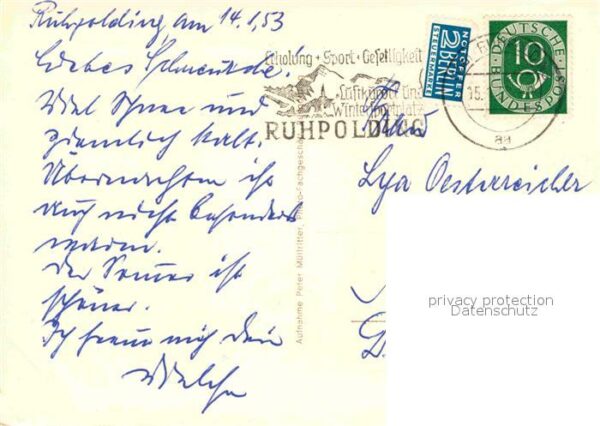 Ruhpolding am 14.1.53
Liebes
Viel Schnee und
ziemlich kalt.
Übernachten ist
auch nicht besonders
warm.
Der Sommer ist
schöner.
Ich freue mich Dein
Erholung + Sport + Geselligkeit
Luftkurort und
Wintersportplatz
RUHPOLDING
NOTOPFER
2 BERLIN
STEUERMARKE
DEUTSCHE
10
BUNDESPOST
15.
aa
Lya Oesterreicher
Aufnahme Peter Müllritter, Photo-Fachgeschä
privacy protection
Datenschutz